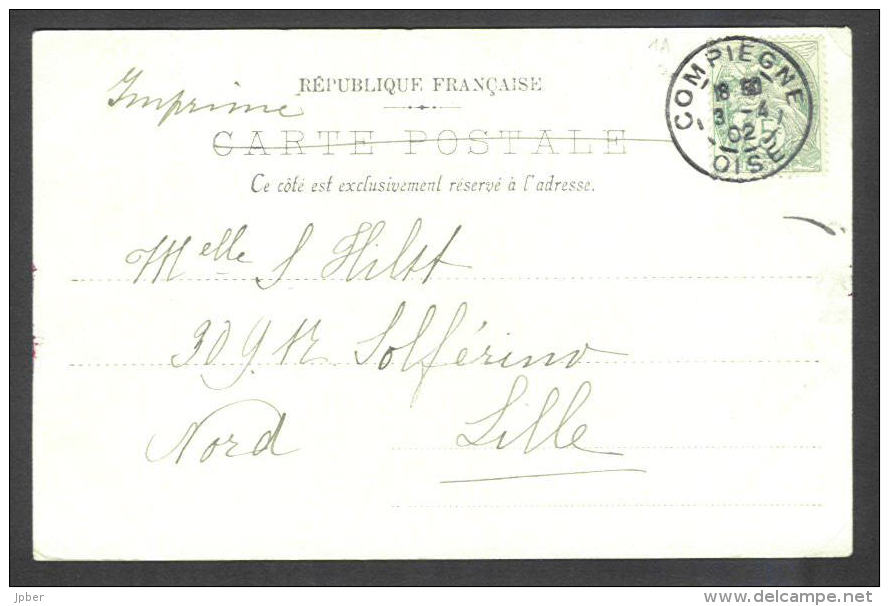 Imprimé
RÉPUBLIQUE FRANÇAISE
CARTE POSTALE
Ce côté est exclusivement réservé à l'adresse.
COMPIEGNE
18
3 -4
02
OISE
5
1A
Melle S Hilst
309 R. Solférino
Nord Lille
jpber
www.delcampe.net